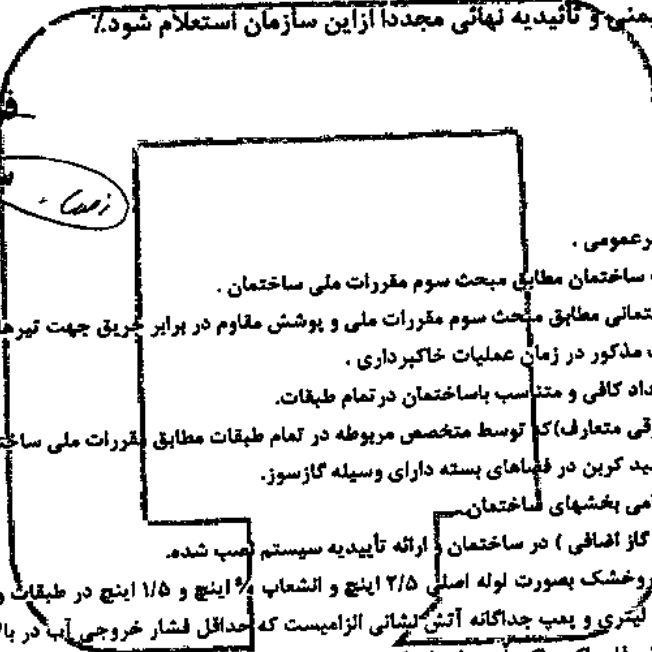 یمنی و تائیدیه نهائی مجددا ازاین سازمان استعلام شود٪
رعمومی .
ساختمان مطابق مبحث سوم مقررات ملی ساختمان .
تمانی مطابق مبحث سوم مقررات ملی و پوشش مقاوم در برابر حریق جهت تیرها
مذکور در زمان عملیات خاکبرداری .
داد کافی و متناسب باساختمان درتمام طبقات.
قی متعارف)که توسط متخصص مربوطه در تمام طبقات مطابق مقررات ملی ساخت
ید کربن در فضاهای بسته دارای وسیله گازسوز.
می بخشهای ساختمان
گاز اضافی ) در ساختمان و ارائه تأییدیه سیستم نصب شده.
روخشک بصورت لوله اصلی ۲/۵ اینچ و انشعاب اینچ و ۱/۵ اینچ در طبقات و
لیتری و پمپ جداگانه آتش نشانی الزامیست که حداقل فشار خروجی آب در بالا